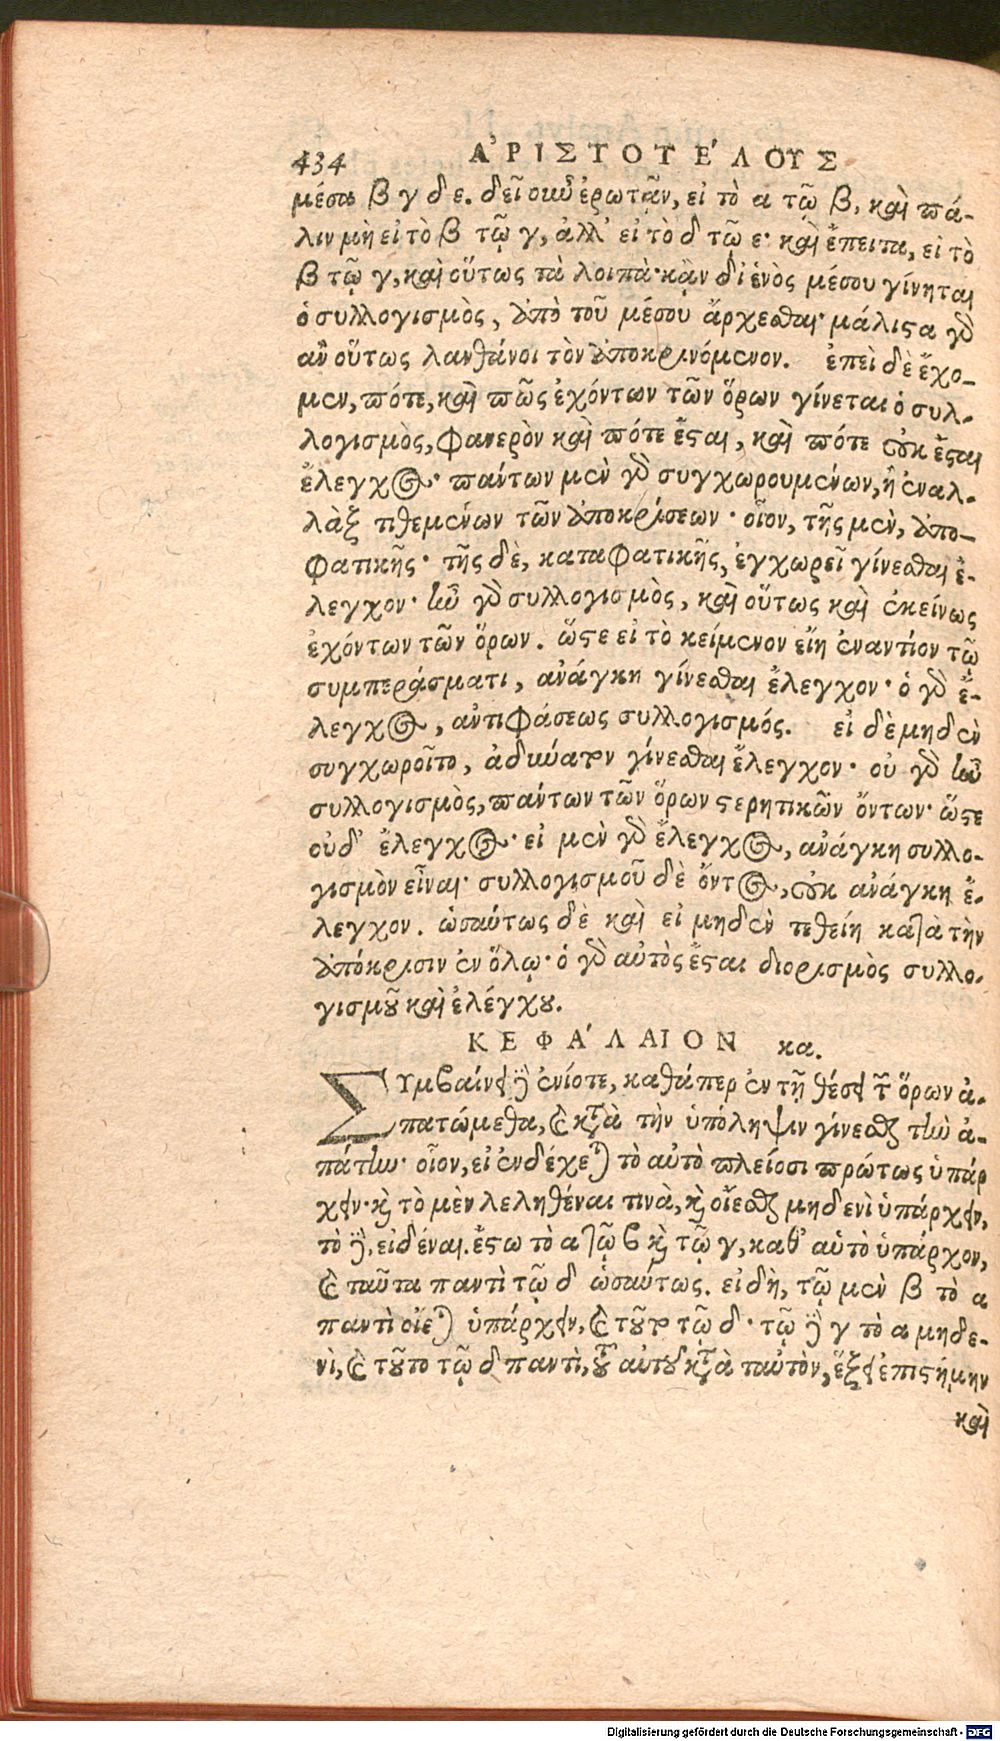 434 ἈΡΙΣΤΟΤΈΛΟΥΣ
μέσα β γ δ ε. δεῖ οὖν ἐρωτᾷν, εἰ τὸ α τῷ β, καὶ πά-
λιν μὴ εἰ τὸ β τῷ γ, ἀλλ' εἰ τὸ δ τῷ ε· καὶ ἔπειτα, εἰ τὸ
β τῷ γ, καὶ οὕτως τὰ λοιπά· κᾂν δι' ἑνὸς μέσου γίνηται
ὁ συλλογισμὸς, ἀπὸ τοῦ μέσου ἄρχεσθαι· μάλιστα γὰρ
ἂν οὕτως λανθάνοι τὸν ἀποκρινόμενον. ἐπεὶ δὲ ἔχο-
μεν, πότε, καὶ πῶς ἐχόντων τῶν ὅρων γίνεται ὁ συλ-
λογισμὸς, φανερὸν καὶ πότε ἔσται, καὶ πότε οὐκ ἔσται
ἔλεγχος· πάντων μὲν γὰρ συγχωρουμένων, ἢ ἐναλ-
λὰξ τιθεμένων τῶν ἀποκρίσεων· οἷον, τῆς μὲν, ἀπο-
φατικῆς· τῆς δὲ, καταφατικῆς, ἐγχωρεῖ γίνεσθαι ἔ-
λεγχον· ἦν γὰρ συλλογισμὸς, καὶ οὕτως καὶ ἐκείνως
ἐχόντων τῶν ὅρων. ὥστε εἰ τὸ κείμενον εἴη ἐναντίον τῷ
συμπεράσματι, ἀνάγκη γίνεσθαι ἔλεγχον· ὁ γὰρ ἔ-
λεγχος, ἀντιφάσεως συλλογισμός. εἰ δὲ μηδὲν
συγχωροῖτο, ἀδύνατον γίνεσθαι ἔλεγχον· οὐ γὰρ ἦν
συλλογισμὸς, πάντων τῶν ὅρων στερητικῶν ὄντων· ὥστε
οὐδ' ἔλεγχος· εἰ μὲν γὰρ ἔλεγχος, ἀνάγκη συλλο-
γισμὸν εἶναι· συλλογισμοῦ δὲ ὄντος, οὐκ ἀνάγκη ἔ-
λεγχον. ὡσαύτως δὲ καὶ εἰ μηδὲν τεθείη κατὰ τὴν
ἀπόκρισιν ἐν ὅλῳ· ὁ γὰρ αὐτὸς ἔσται διορισμὸς συλλο-
γισμοῦ καὶ ἐλέγχου.
ΚΕΦΆΛΑΙΟΝ κα.
Συμβαίνει δὲ ἐνίοτε, καθάπερ ἐν τῇ θέσει τῶν ὅρων ἀ-
πατώμεθα, καὶ κατὰ τὴν ὑπόληψιν γίνεσθαι τὴν ἀ-
πάτην· οἷον, εἰ ἐνδέχεται τὸ αὐτὸ πλείοσι πρώτως ὑπάρ
χειν· καὶ τὸ μὲν λεληθέναι τινὰ, καὶ οἴεσθαι μηδενὶ ὑπάρχειν,
τὸ δὲ, εἰδέναι. ἔστω τὸ α τῷ β καὶ τῷ γ, καθ' αὑτὸ ὑπάρχον,
καὶ ταῦτα παντὶ τῷ δ ὡσαύτως. εἰ δὴ, τῷ μὲν β τὸ α
παντὶ οἴεται ὑπάρχειν, καὶ τοῦτο τῷ δ· τῷ δὲ γ τὸ α μηδε-
νὶ, καὶ τοῦτο τῷ δ παντὶ, τοῦ αὐτοῦ κατὰ ταὐτὸν, ἕξει ἐπιστήμην
καὶ
Digitalisierung gefördert durch die Deutsche Forschungsgemeinschaft - DFG